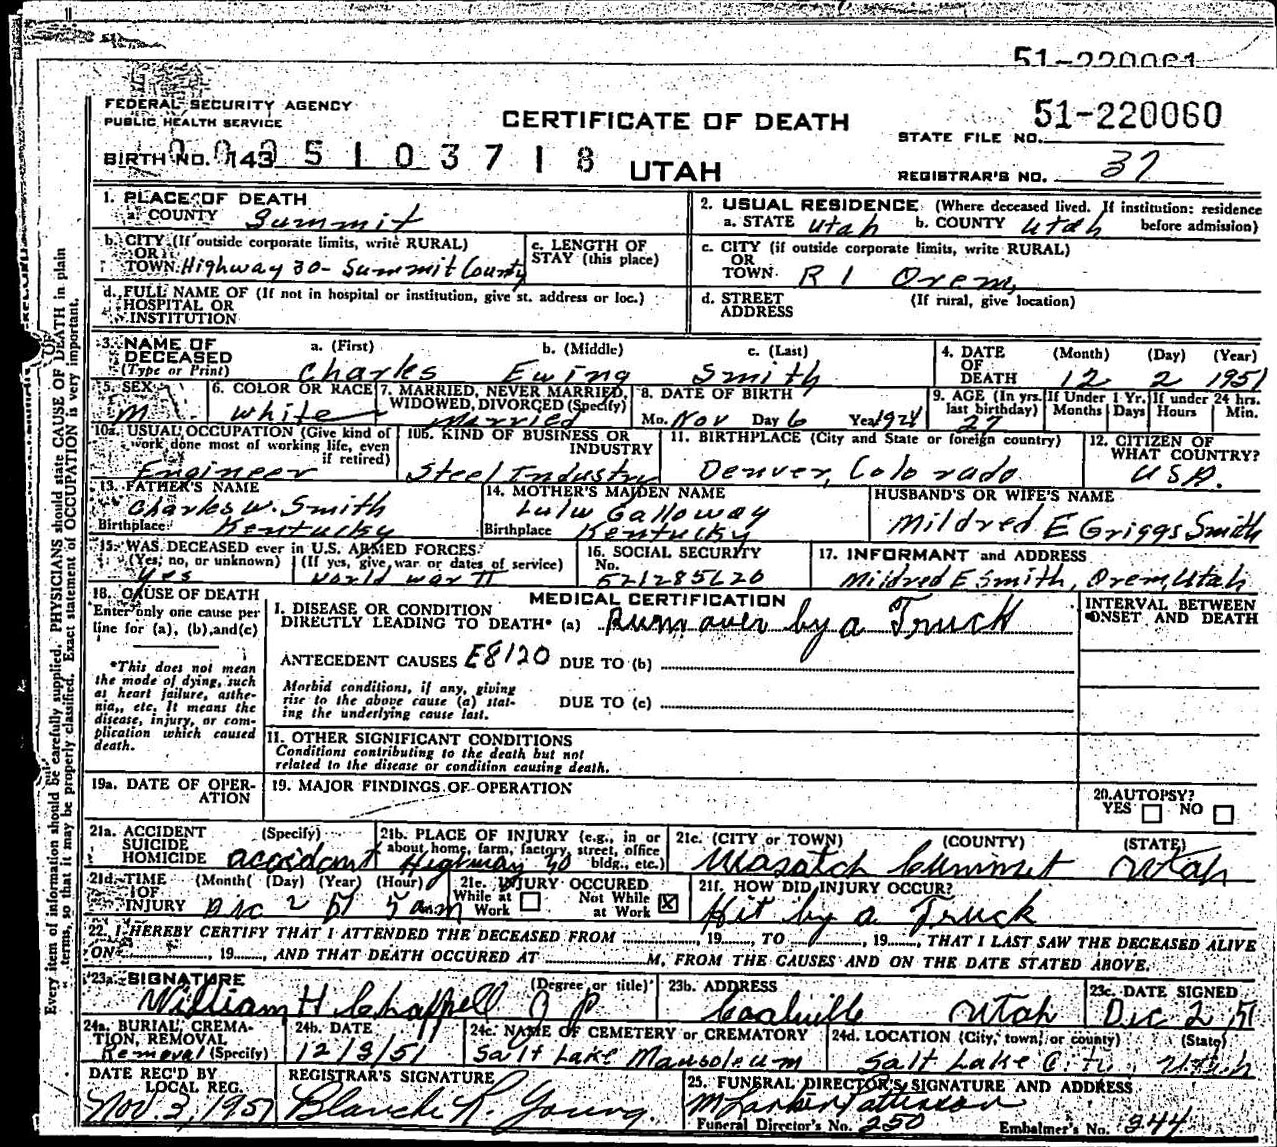 51-220061
FEDERAL SECURITY AGENCY
PUBLIC HEALTH SERVICE
CERTIFICATE OF DEATH
STATE FILE NO. 51-220060
BIRTH NO. 143
5 1 0 3 7 1 8
UTAH
REGISTRAR'S NO. 37
1. PLACE OF DEATH
a. COUNTY Summit
2. USUAL RESIDENCE (Where deceased lived. If institution: residence before admission)
a. STATE Utah b. COUNTY Utah
b. CITY (If outside corporate limits, write RURAL)
OR
TOWN Highway 30- Summit County
c. LENGTH OF STAY (this place)
c. CITY (if outside corporate limits, write RURAL)
OR
TOWN R 1 Orem,
d. FULL NAME OF (If not in hospital or institution, give st. address or loc.)
HOSPITAL OR
INSTITUTION
d. STREET ADDRESS (If rural, give location)
3. NAME OF DECEASED (Type or Print)
a. (First) b. (Middle) c. (Last)
Charles Ewing Smith
4. DATE OF DEATH (Month) (Day) (Year)
12 2 1951
5. SEX M
6. COLOR OR RACE white
7. MARRIED, NEVER MARRIED, WIDOWED, DIVORCED (Specify) Married
8. DATE OF BIRTH
Mo. Nov Day 6 Year 1924
9. AGE (In yrs. last birthday) 27
If Under 1 Yr. Months Days
If under 24 hrs. Hours Min.
10a. USUAL OCCUPATION (Give kind of work done most of working life, even if retired)
Engineer
10b. KIND OF BUSINESS OR INDUSTRY
Steel Industry
11. BIRTHPLACE (City and State or foreign country)
Denver, Colorado
12. CITIZEN OF WHAT COUNTRY?
USA.
13. FATHER'S NAME
Charles W. Smith
Birthplace Kentucky
14. MOTHER'S MAIDEN NAME
Lulu Galloway
Birthplace Kentucky
HUSBAND'S OR WIFE'S NAME
Mildred E Griggs Smith
15. WAS DECEASED ever in U.S. ARMED FORCES?
(Yes, no, or unknown) (If yes, give war or dates of service)
Yes World War II
16. SOCIAL SECURITY No.
521285620
17. INFORMANT and ADDRESS
Mildred E Smith, Orem, Utah
18. CAUSE OF DEATH
Enter only one cause per line for (a), (b), and (c)
*This does not mean the mode of dying, such as heart failure, asthenia, etc. It means the disease, injury, or complication which caused death.
MEDICAL CERTIFICATION
INTERVAL BETWEEN ONSET AND DEATH
I. DISEASE OR CONDITION
DIRECTLY LEADING TO DEATH* (a) Run over by a Truck
ANTECEDENT CAUSES E8120 DUE TO (b)
Morbid conditions, if any, giving rise to the above cause (a) stating the underlying cause last.
DUE TO (c)
II. OTHER SIGNIFICANT CONDITIONS
Conditions contributing to the death but not related to the disease or condition causing death.
19a. DATE OF OPERATION
19. MAJOR FINDINGS OF OPERATION
20. AUTOPSY?
YES NO
21a. ACCIDENT SUICIDE HOMICIDE (Specify)
accident
21b. PLACE OF INJURY (e.g., in or about home, farm, factory, street, office bldg., etc.)
Highway 30
21c. (CITY or TOWN) (COUNTY) (STATE)
Wasatch Summit Utah
21d. TIME OF INJURY (Month) (Day) (Year) (Hour)
Dec 2 51 5 am
21e. INJURY OCCURED
While at Work Not While at Work
21f. HOW DID INJURY OCCUR?
Hit by a Truck
22. I HEREBY CERTIFY THAT I ATTENDED THE DECEASED FROM , 19 , TO , 19 , THAT I LAST SAW THE DECEASED ALIVE
ON , 19 , AND THAT DEATH OCCURED AT M., FROM THE CAUSES AND ON THE DATE STATED ABOVE.
23a. SIGNATURE (Degree or title)
William H. Chappell J P
23b. ADDRESS
Coalville Utah
23c. DATE SIGNED
Dec 2, 51
24a. BURIAL, CREMATION, REMOVAL (Specify)
Removal
24b. DATE
12/3/51
24c. NAME OF CEMETERY or CREMATORY
Salt Lake Mausoleum
24d. LOCATION (City, town, or county) (State)
Salt Lake City, Utah
DATE REC'D BY LOCAL REG.
Nov. 3, 1951
REGISTRAR'S SIGNATURE
Blanche R. Young.
25. FUNERAL DIRECTOR'S SIGNATURE AND ADDRESS
Funeral Director's No. 250 Embalmer's No. 344
Every item of information should be carefully supplied. PHYSICIANS should state CAUSE OF DEATH in plain
terms, so that it may be properly classified. Exact statement of OCCUPATION is very important.